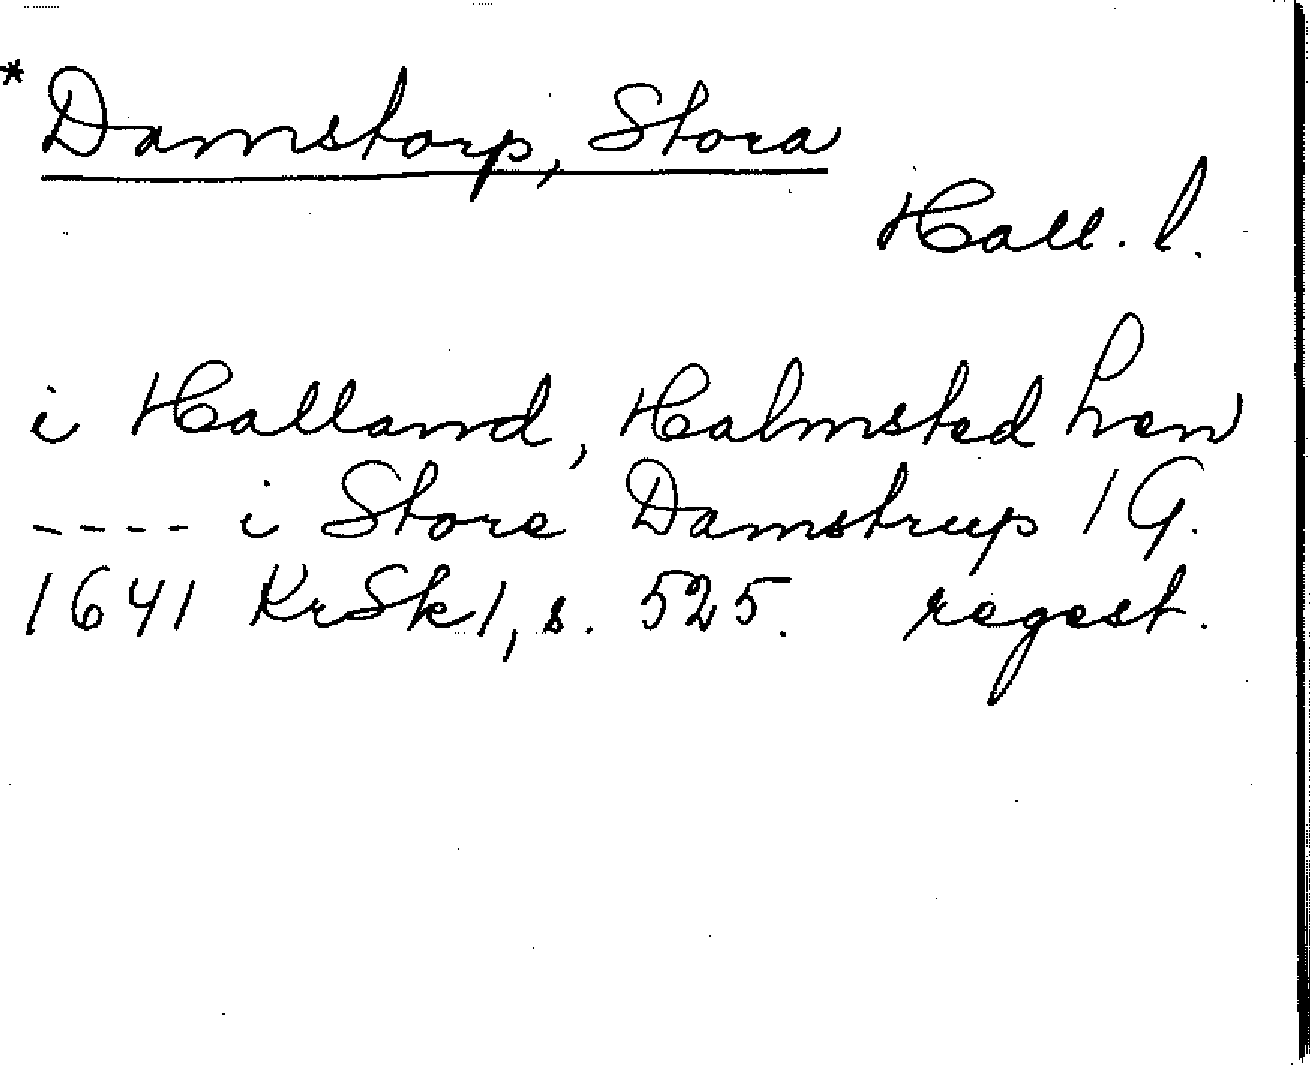 * Damstorp, Stora
Hall. l.
i Halland, Halmsted Len
---- i Store Damstrup 1 G.
1641 KrSk 1, s. 525. regest.